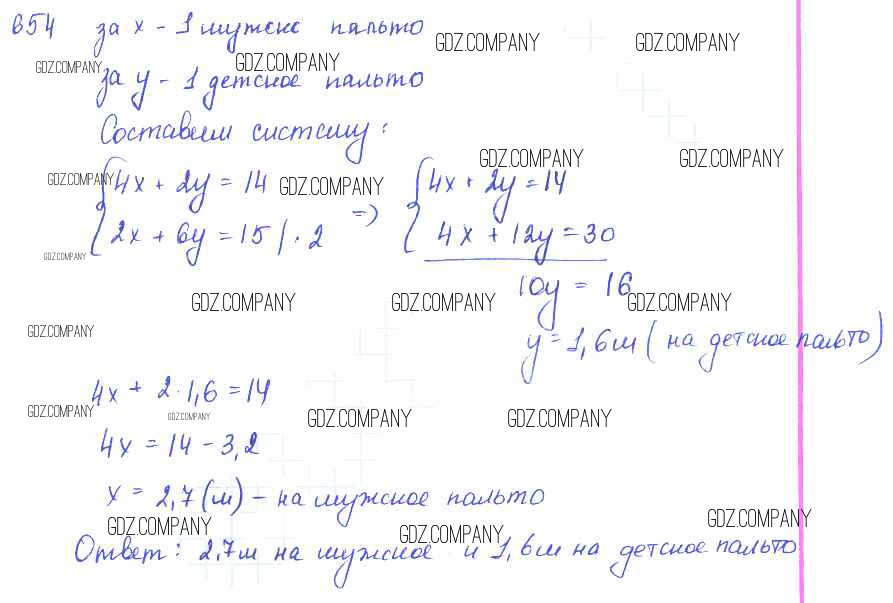 654 за x - 1 мужск пальто
GDZ.COMPANY GDZ.COMPANY
GDZ.COMPANY GDZ.COMPANY
за y - 1 детское пальто
Составим систему:
GDZ.COMPANY GDZ.COMPANY
GDZ.COMPANY GDZ.COMPANY
{4x + 2y = 14 {4x + 2y = 14
{2x + 6y = 15 | · 2 => {4x + 12y = 30
GDZ.COMPANY
10y = 16
GDZ.COMPANY GDZ.COMPANY GDZ.COMPANY
GDZ.COMPANY
y = 1,6м (на детское пальто)
4x + 2·1,6 = 14
GDZ.COMPANY GDZ.COMPANY GDZ.COMPANY GDZ.COMPANY
4x = 14 - 3,2
x = 2,7 (м) - на мужское пальто
GDZ.COMPANY GDZ.COMPANY GDZ.COMPANY
Ответ: 2,7м на мужское и 1,6м на детское пальто